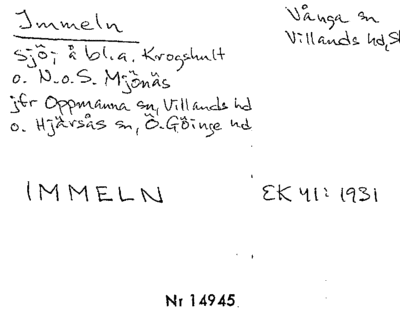 Immeln
Vånga sn
Villands hd, Sk
Sjö; å bl.a. Krogshult
o. N.o.S. Mjönäs
jfr Oppmanna sn, Villands hd
o. Hjärsås sn, Ö. Göinge hd
IMMELN
EK 41: 1931
Nr 14945